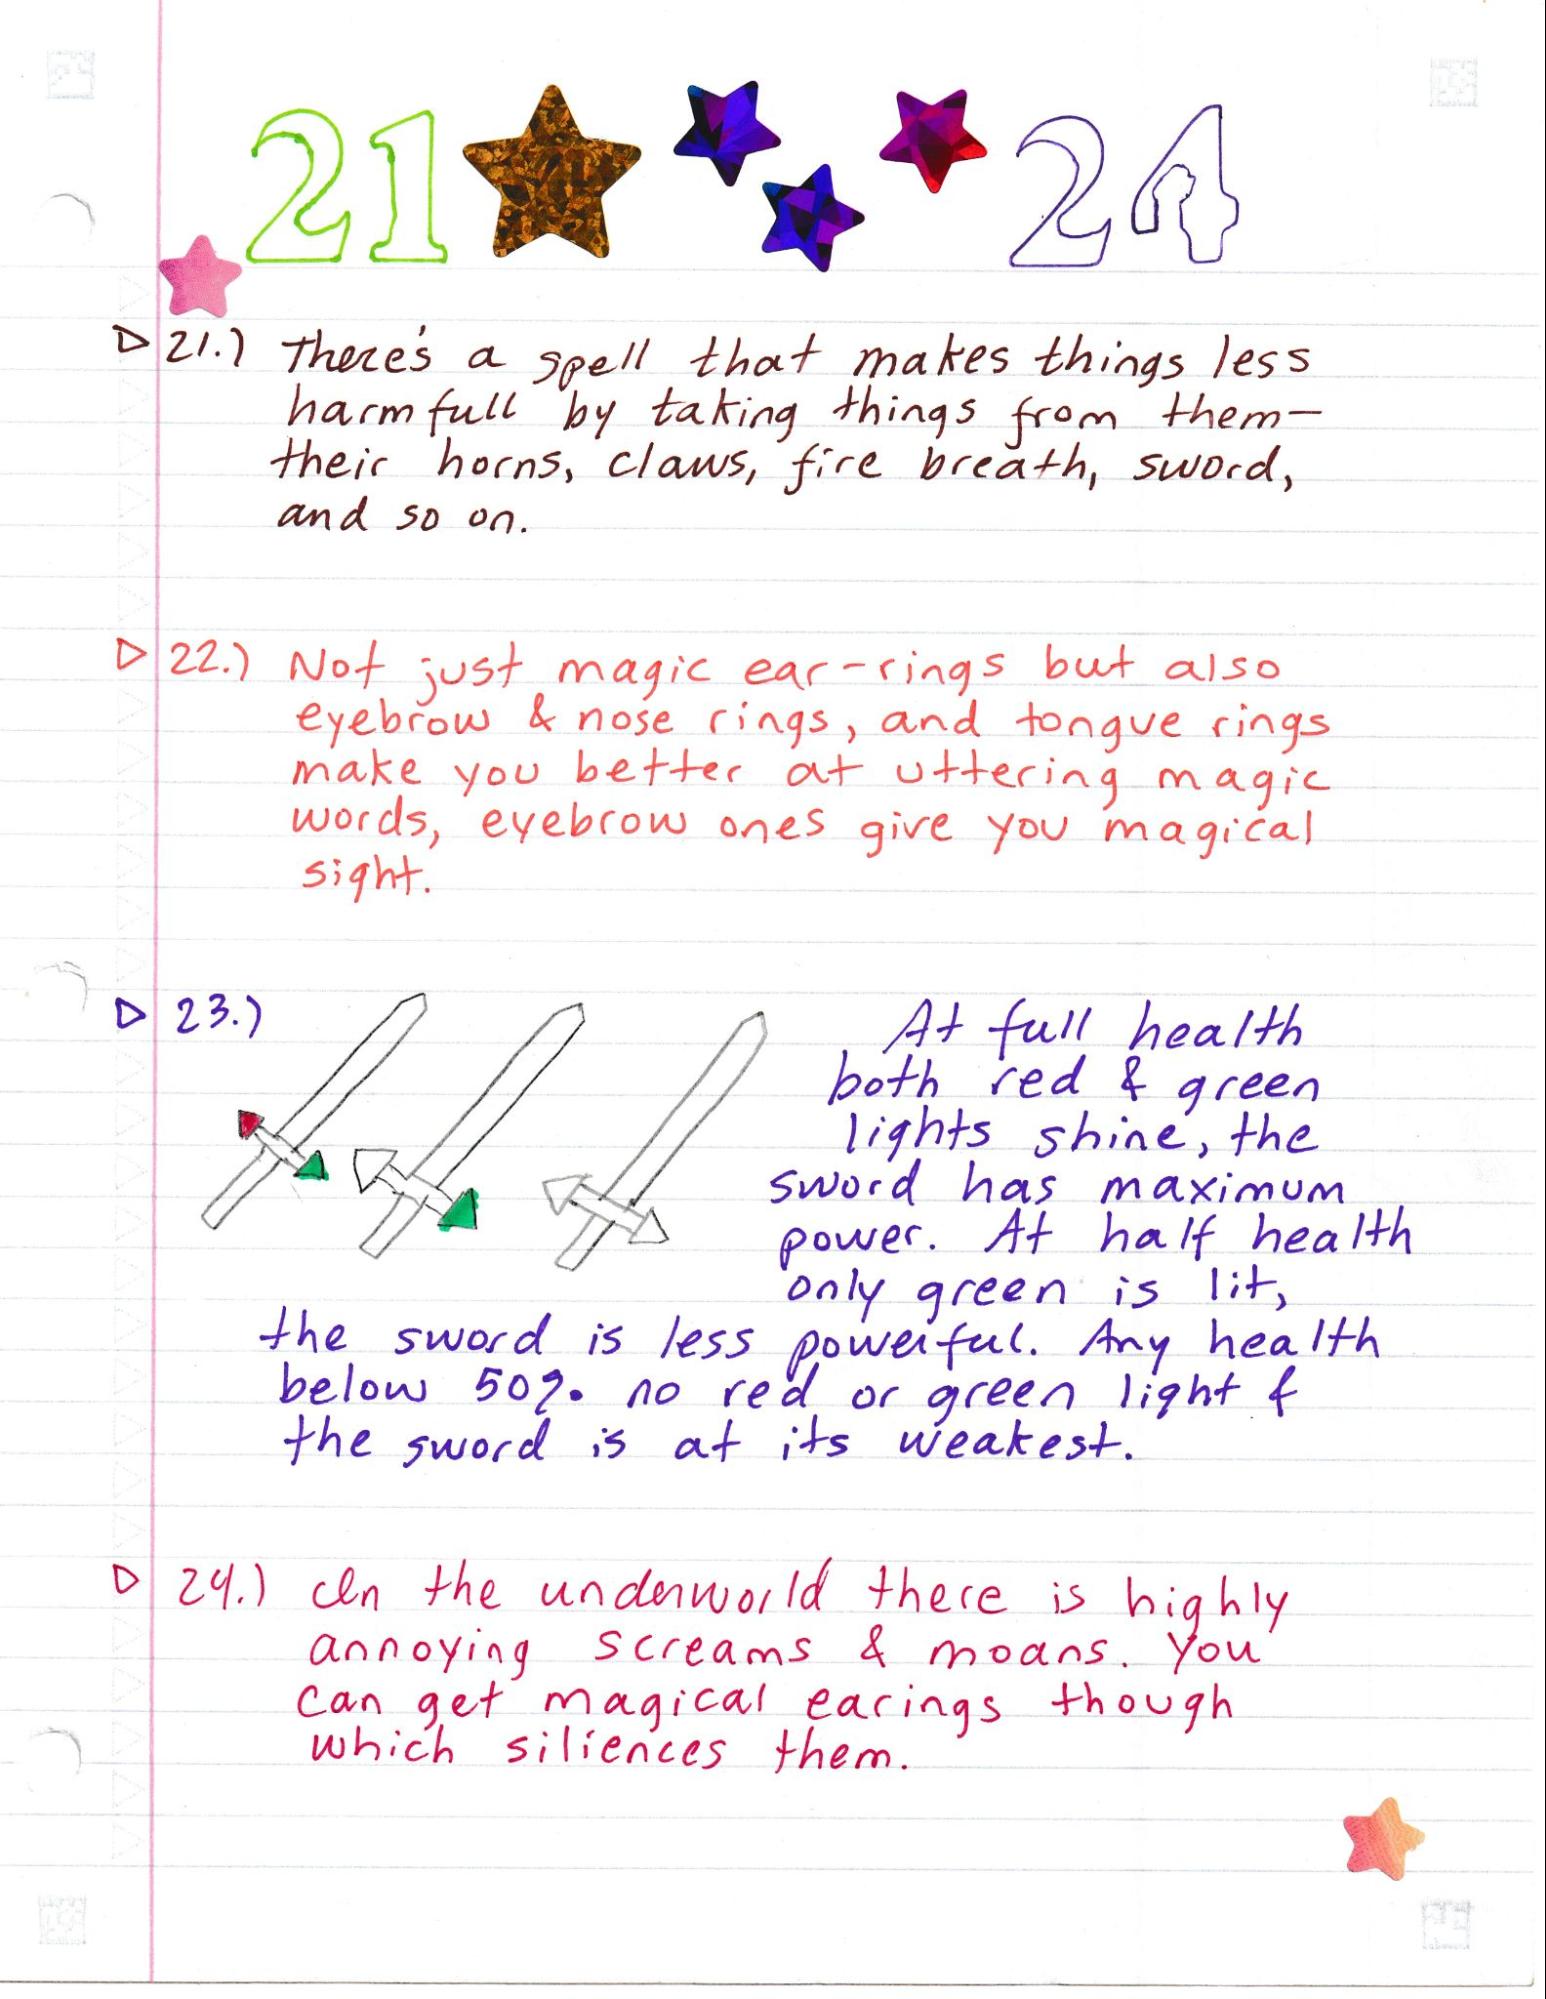 21 24
21.) There's a spell that makes things less
harmfull by taking things from them—
their horns, claws, fire breath, sword,
and so on.
22.) Not just magic ear-rings but also
eyebrow & nose rings, and tongue rings
make you better at uttering magic
words, eyebrow ones give you magical
sight.
23.) At full health
both red & green
lights shine, the
sword has maximum
power. At half health
only green is lit,
the sword is less powerful. Any health
below 50% no red or green light &
the sword is at its weakest.
24.) In the underworld there is highly
annoying screams & moans. You
can get magical earings though
which siliences them.